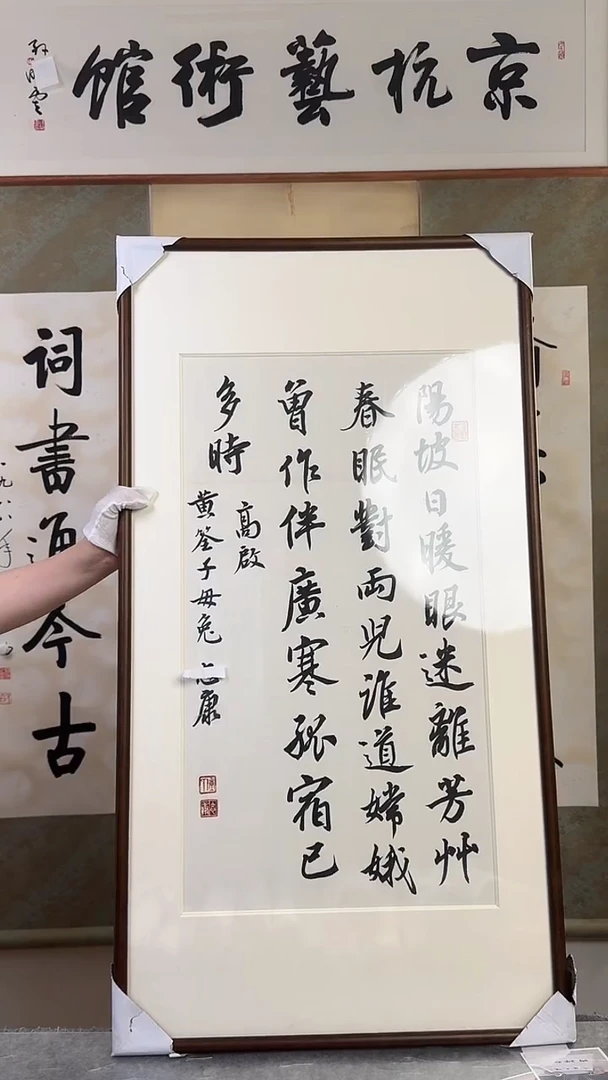 京杭藝術館
陽坡日暖眼迷離芳艸
春眠對兩兒誰道嫦娥
曾作伴廣寒孤宿已
多時
高啟
黃筌子母兔 康
詞書通今古
一九八八年